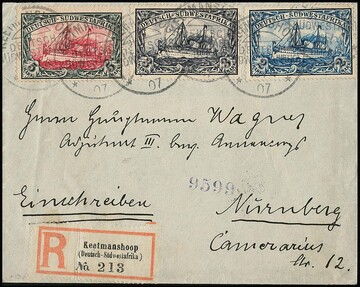 DEUTSCH-SÜDWESTAFRIKA DEUTSCH-SÜDWESTAFRIKA DEUTSCH-SÜDWESTAFRIKA
07 07 07
Herrn Hauptmann Wagner
Adjutant III. bay. Armeecorps
9599
Einschreiben
Nürnberg
Camerarius
Str. 12.
R
Keetmanshoop
(Deutsch-Südwestafrika)
No 213